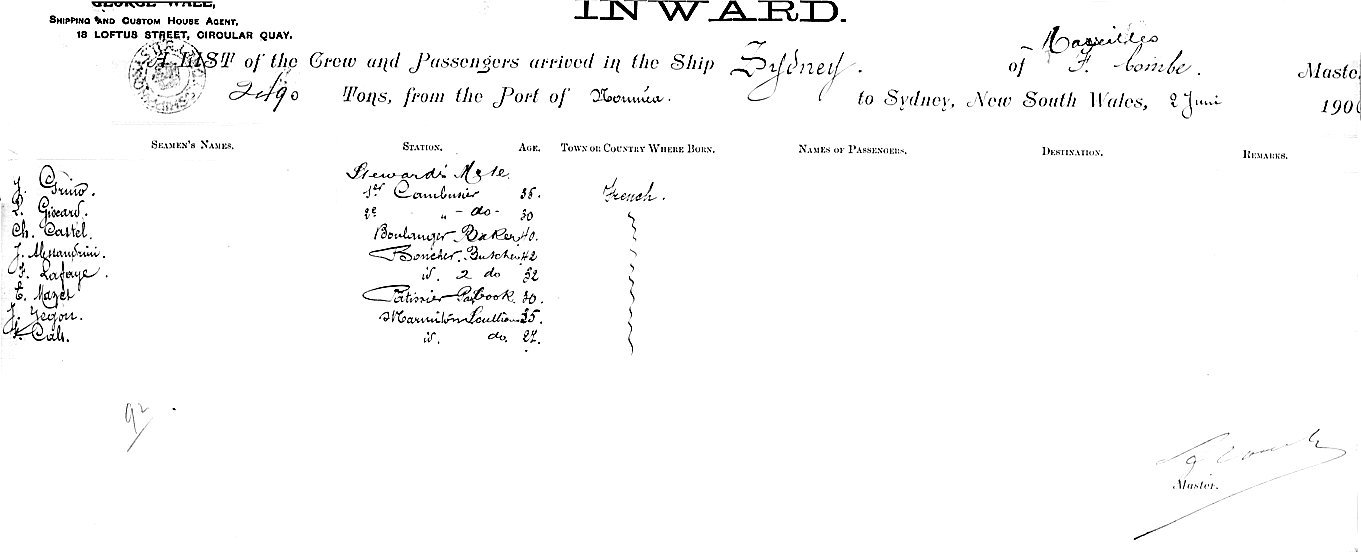 GEORGE WALL,
SHIPPING AND CUSTOM HOUSE AGENT,
18 LOFTUS STREET, CIRCULAR QUAY.
INWARD.
A LIST of the Crew and Passengers arrived in the Ship Sydney. of Marseilles F. Combe. Maste
Tons, from the Port of Nouméa. to Sydney, New South Wales, 2 Juni 190
SEAMEN'S NAMES. STATION. AGE. TOWN OR COUNTRY WHERE BORN. NAMES OF PASSENGERS. DESTINATION. REMARKS.
Steward's Mate.
J. 1er Cambusier 38. French.
L. Giscard. 2e " - do - 30
Ch. Castel. Boulanger Baker 40.
J. Alessandrini. Boucher. Butcher 42
F. Lafaye. id. 2 do 32
E. Mazet Patissier Cook. 30.
J. Marmiton Scullion 35.
Cali. id. do. 27.
92
Master.